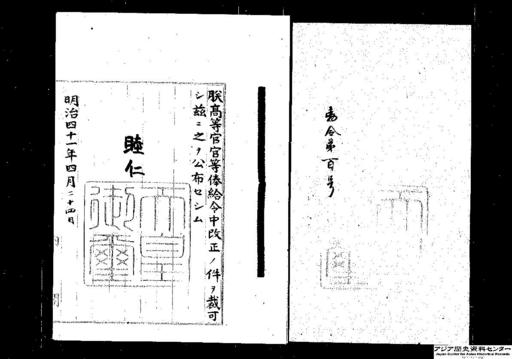 勅令第百号
朕高等官官等俸給令中改正ノ件ヲ裁可
シ茲ニ之ヲ公布セシム
睦仁
天皇御璽
明治四十一年四月二十四日
アジア歴史資料センター
Japan Center for Asian Historical Records